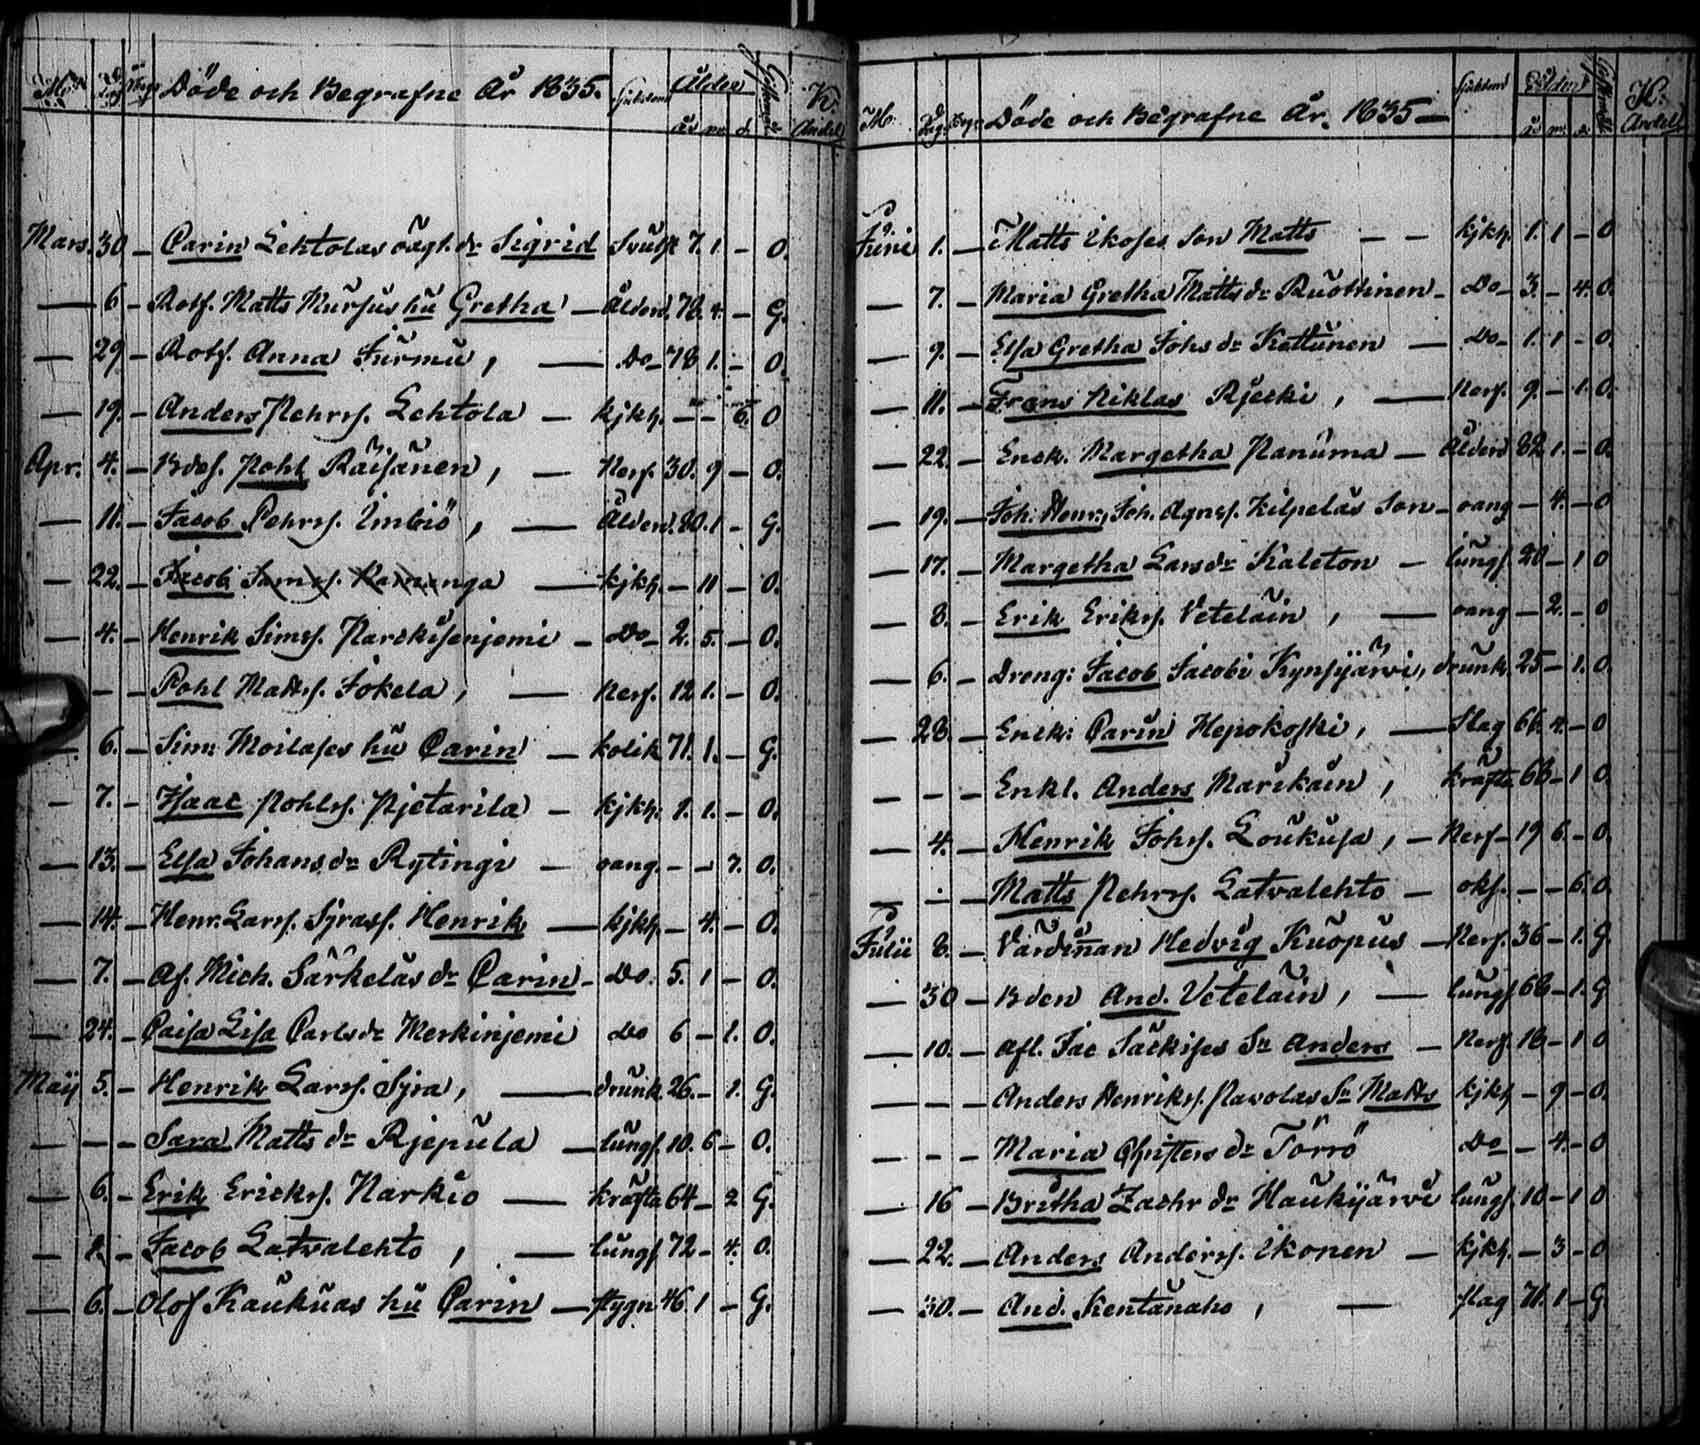 Döde och Begrafne År 1835. Sjukdom Ålder K.
år m. d. Andel
Mars. 30 - Carin Lehtolas oägt. dr Sigrid Svulst 7. 1. - O.
— 6 - Rotf. Matts Mursus hu Gretha — Ålderd. 78. 4. — G.
— 29 - Rotf. Anna Jurmu, — Do - 78 1. - O.
— 19. - Anders Pehrss. Lehtola — kjkh. - - 6. O
Apr. 4. - Bdes. Pohl Räisänen, — Nerf. 30. 9 - O.
— 11. - Jacob Pehrss. Imbiö, — Ålderd. 80. 1 - G.
— 22. - Jacob Sams. Kamunga — kjkh. - 11 - O.
— 4. - Henrik Simss. Narckisenjemi - Do - 2. 5. - O.
- - Pohl Mattss. Jokela, — Nerf. 12 1. - O.
— 6. - Sim: Moilases hu Carin — kolik 71. 1. - G.
- 7. - Isaac Pohlss. Pjetarila - kjkh. 1. 1. - O.
— 13. - Elsa Johans dr Rytingi — oang. - - 7. O.
— 14. - Henr. Larss. Sjrass. Henrik — kjkh. - 4. - O.
— 7. - Af. Mich. Särkeläs dr Carin - Do. 5. 1 - O.
— 24. - Caisa Lisa Carls dr Merkinjemi Do 6 - 1. O.
Maij 5. - Henrik Larss. Sjra, — drunk. 26. - 1. G.
— - - Sara Matts dr Rjepula — lungs. 10. 6 - O.
— 6. - Erik Erickss. Narkio — kräfta 64 - 2 G.
— - Jacob Latvalehto, — lungs. 72 - 4. O.
— 6. - Olof Kaukuas hu Carin — stygn 46. 1 - G.
M. Dag. Döde och Begrafne År. 1835 — Sjukdom Ålder K.
år m. d. Andel
Junii 1. - Matts Ikoses Son Matts - - kjkh. 1. 1 - O
— 7. - Maria Gretha Matts dr Ruottinen - Do - 3. - 4. O.
— 9. - Elsa Gretha Johs dr Kettunen — Do - 1. 1 - O.
— 11. - Frans Niklas Rjecki, — Nerf. 9. - 1. O.
— 22. - Enck. Margetha Panuma — Ålderd 82. 1. - O.
— 19. - Joh. Henr., Joh. Agnss. Kilpeläs Son - oang - 4. - O
— 17. - Margetha Lars dr Kaleton - lungs. 20 - 1 O
— 8. - Erik Erikss. Vetelain, — oang - 2. - O
— 6. - Dreng: Jacob Jacobi Kynsijärvi, drunk. 25 - 1. O.
— 28. - Enck: Carin Hepokoski, — Slag 66. 4. - O
— - - Enkl. Anders Marikain, kräfta 68 - 1 O.
— 4. - Henrik Johss. Loukusa, — Nerf - 19 6. - O.
— - - Matts Pehrss. Latvalehto - oks. - - 6. O.
Julii 8. - Värdinnan Hedvig Kuopus - Nerf. 36 - 1. G
— 30 - Bden And. Vetelain, — lungs. 68 - 1. G
— 10. - Afl. Jac Säckises Sn Anders — Nerf. 18 - 1 O
— - - Anders Henrikss. Pavolas Sn Matts kjkh - 9 - O.
— - - Maria Christers dr Törrö Do - 4. - O
— 16 - Britha Zachr dr Haukijärvi lungs. 10 - 1 O
— 22. - Anders Anderss. Ikonen — kjkh. - 3 - O
— 30. - And. Kentanaho, — slag 71. 1 - G